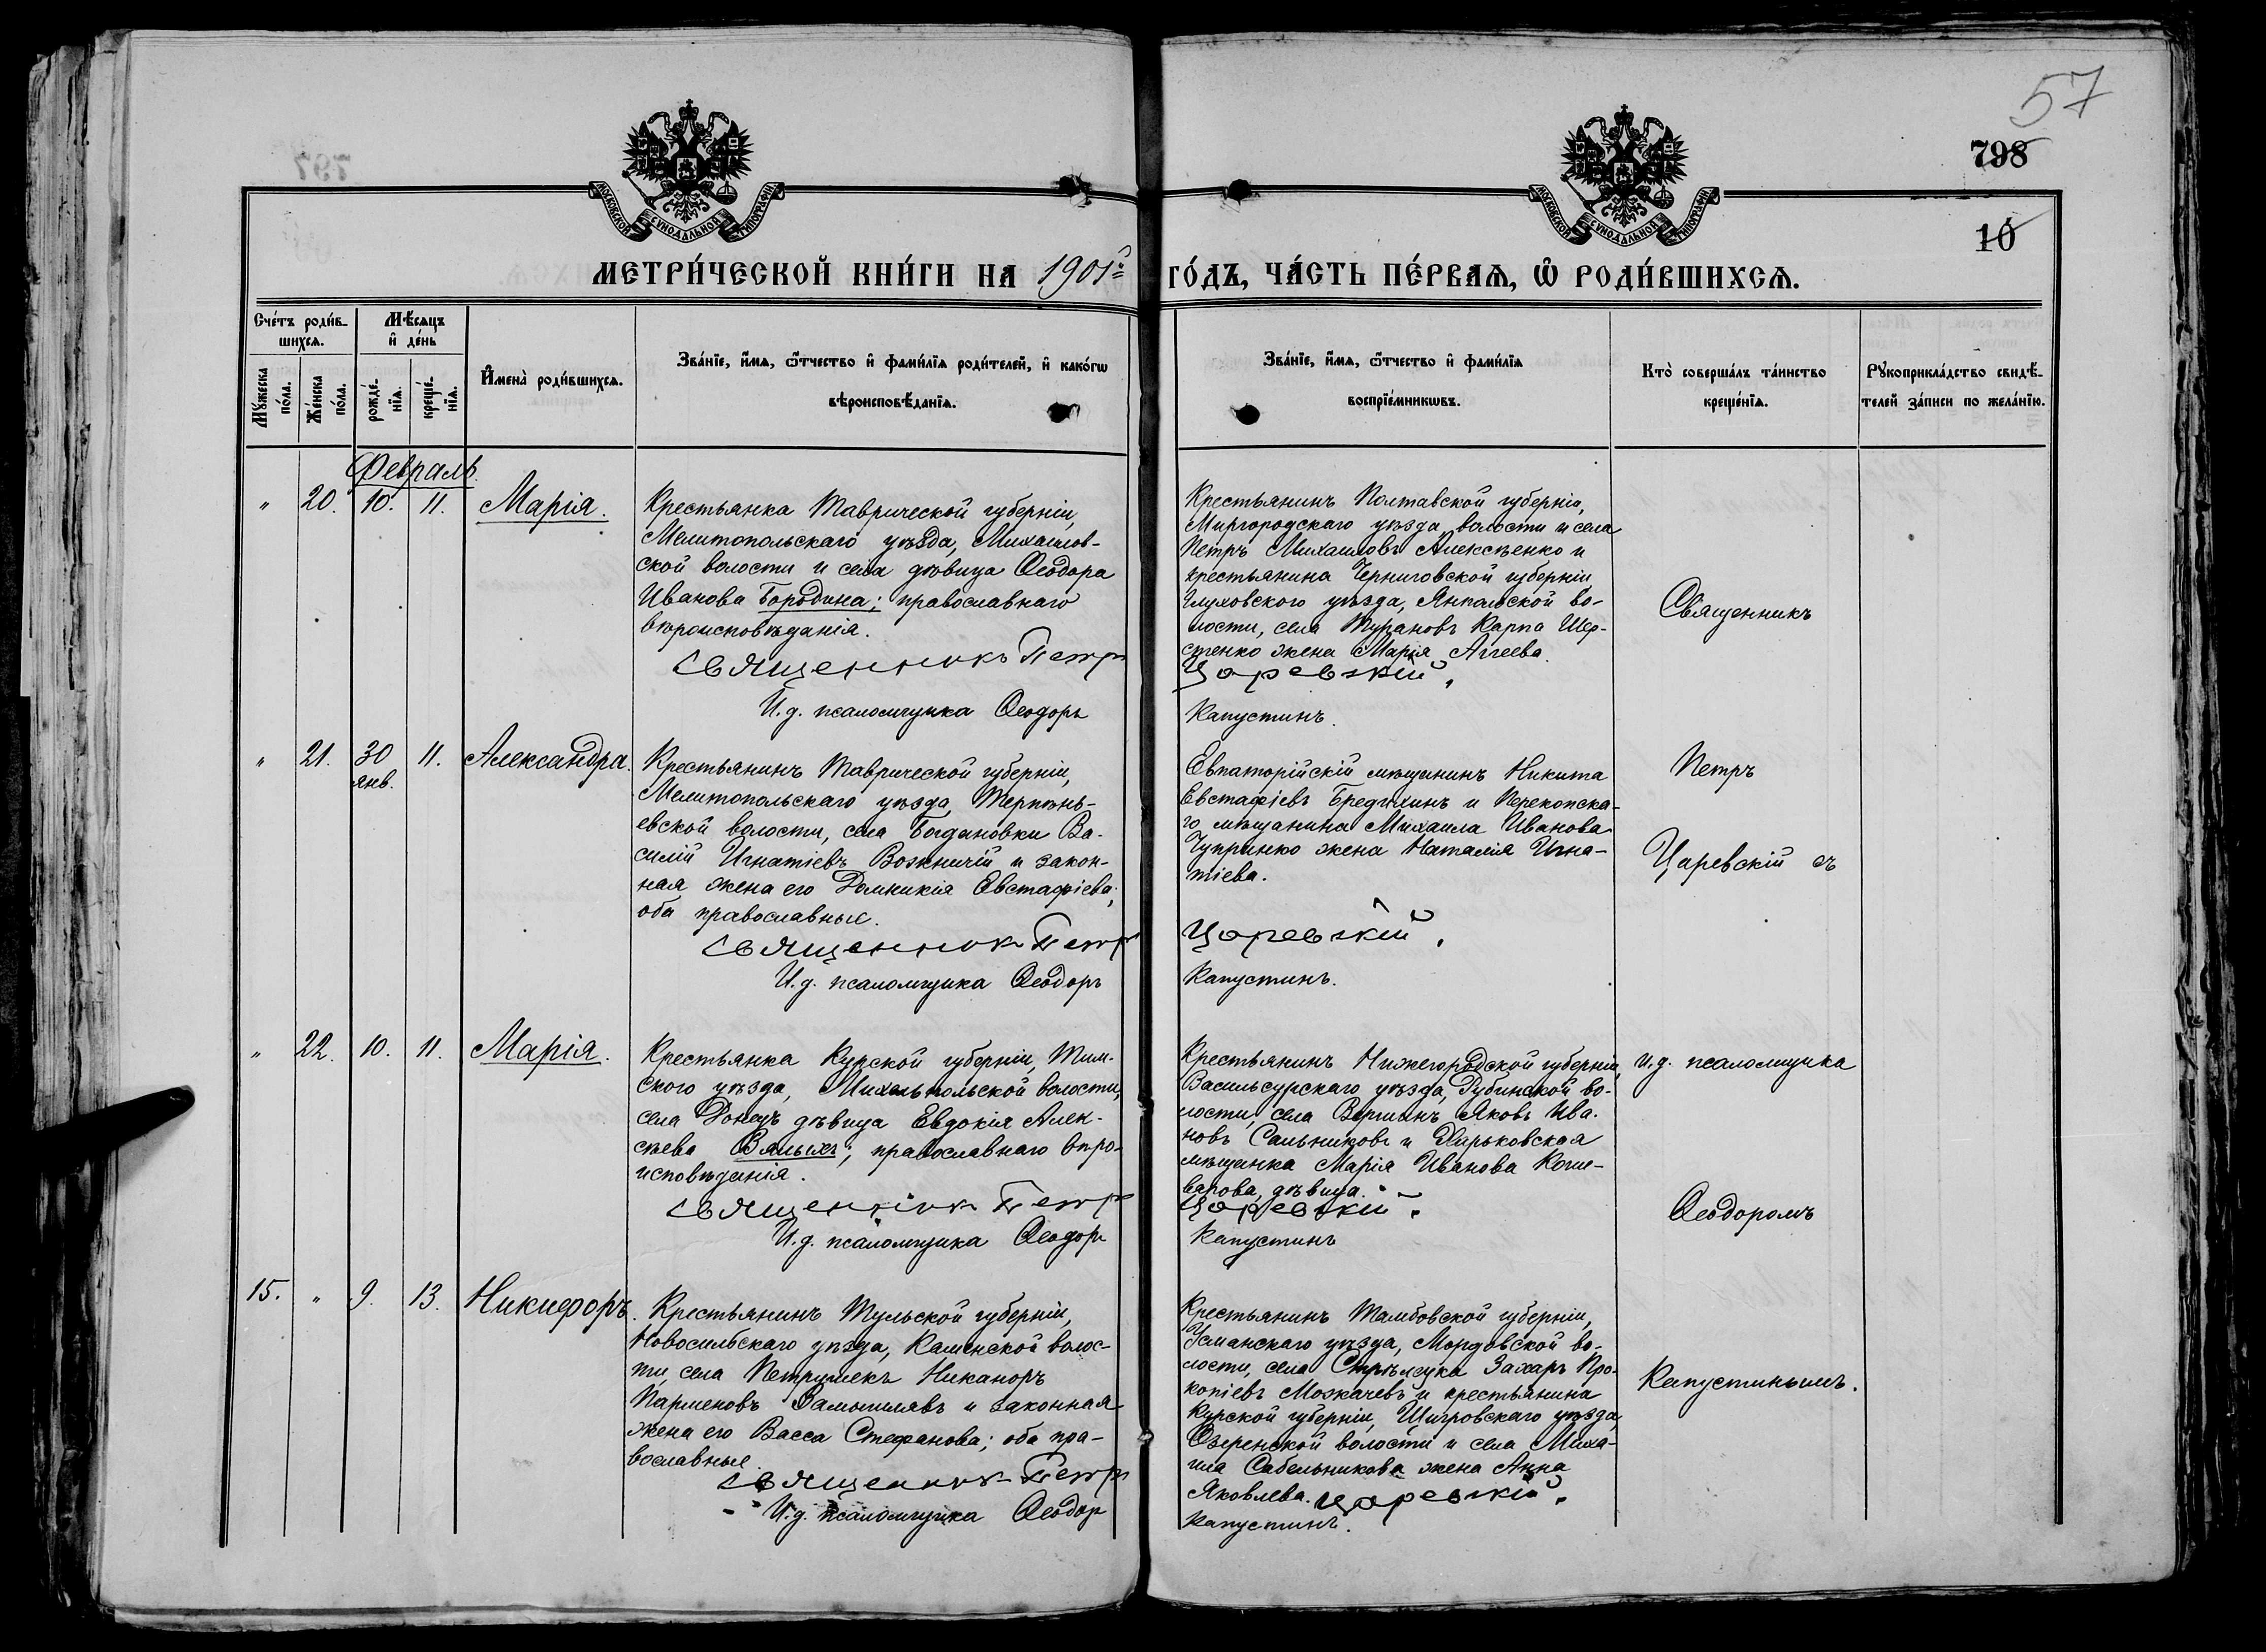 57
798
10
МОСКОВСКОЙ СѴНОДАЛЬНОЙ ТИПОГРАФІИ
МОСКОВСКОЙ СѴНОДАЛЬНОЙ ТИПОГРАФІИ
МЕТРИ́ЧЕСКОЙ КНИ́ГИ НА 1901й
ГО́ДЪ, ЧА́СТЬ ПЕ́РВАѦ, Ѡ҆ РОДИ́ВШИХСѦ.
Сче́тъ роди́в-
шихсѧ.
Мѣ́сѧцъ
и҆ де́нь
Мꙋ́жеска по́ла.
Же́нска по́ла.
рожде́-нїѧ.
креще́-нїѧ.
И҆мена̀ роди́вшихсѧ.
Зва́нїе, и҆́мѧ, ѻ҆́тчество и҆ фами́лїѧ роди́телей, и҆ како́гѡ
вѣроисповѣ́данїѧ.
Зва́нїе, и҆́мѧ, ѻ҆́тчество и҆ фами́лїѧ
воспрїе́мникѡвъ.
Кто̀ соверша́лъ та́инство
креще́нїѧ.
Рꙋкоприкла́дство свидѣ́-
телей за́писи по жела́нїю.
Февраль.
" 20. 10. 11. Марія.
Крестьянка Таврической губерніи,
Мелитопольскаго уѣзда, Михайлов-
ской волости и села дѣвица Ѳеодора
Иванова Бородина; православнаго
вѣроисповѣданія.
Священникъ Петр
И.д. псаломщика Ѳеодоръ
Крестьянинъ Полтавской губерніи,
Миргородскаго уѣзда, волости и села
Петръ Михаиловъ Алексѣенко и
крестьянина Черниговской губерніи
Глуховского уѣзда, Янпольской во-
лости, села Турановъ Карпа Шер-
стенко жена Марія Аггеева.
Царевскій.
Капустинъ.
Священникъ
" 21. 30 янв. 11. Александра.
Крестьянинъ Таврической губерніи,
Мелитопольскаго уѣзда, Терпѣнь-
евской волости, села Богдановки Ва-
силій Игнатіевъ Возничій и закон-
ная жена его Домникія Евстафіева;
оба православные.
Священник Петр
И.д. псаломщика Ѳеодоръ
Евпаторійскій мѣщанинъ Никита
Евстафіевъ Бредихинъ и Перекопска-
го мѣщанина Михаила Иванова
Чупринко жена Наталія Игна-
тіева.
Царевскій.
Капустинъ.
Петръ
Царевскій съ
" 22. 10. 11. Марія.
Крестьянка Курской губерніи, Тим-
ского уѣзда, Михельпольской волости,
села Донецъ дѣвица Евдокія Алек-
сѣева Вялыхъ; православнаго вѣро-
исповѣданія.
Священник Петр
И.д. псаломщика Ѳеодоръ
Крестьянинъ Нижегородской губерніи,
Васильсурскаго уѣзда, во-
лости, села Яковъ Ива-
новъ Сальниковъ и Харьковская
мѣщанка Марія Иванова Коше-
варова, дѣвица.
Царевскій.
Капустинъ
и.д. псаломщика
Ѳеодоромъ
15. " 9. 13. Никифоръ.
Крестьянинъ Тульской губерніи,
Новосильскаго уѣзда, Каменской волос-
ти, села Петрушекъ Никаноръ
Парменовъ Замышлявъ и законная
жена его Васса Стефанова; оба пра-
вославные.
Священник Петр
И.д. псаломщика Ѳеодор
Крестьянинъ Тамбовской губерніи,
Усманскаго уѣзда, Мордовской во-
лости, села Стрѣлецка Захаръ Про-
копіевъ Можачевъ и крестьянина
Курской губерніи, Щигровскаго уѣзда,
Озеренской волости и села Миха-
ила Сабельникова жена Анна
Яковлева. Царевскій.
Капустинъ.
Капустинымъ.